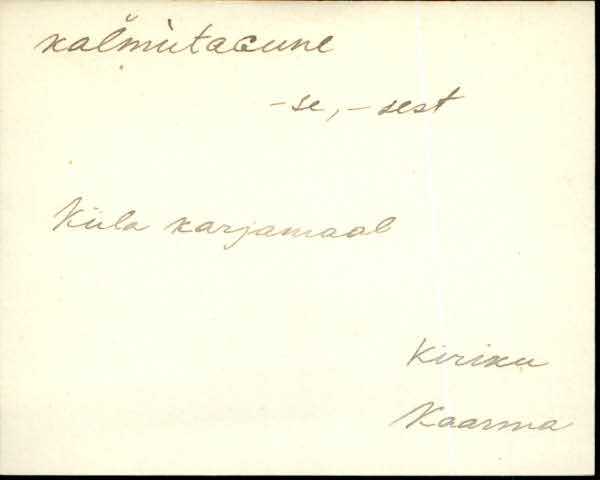 kalmutagune
-se, -sest
Küla karjamaal
Kiriku
Kaarma